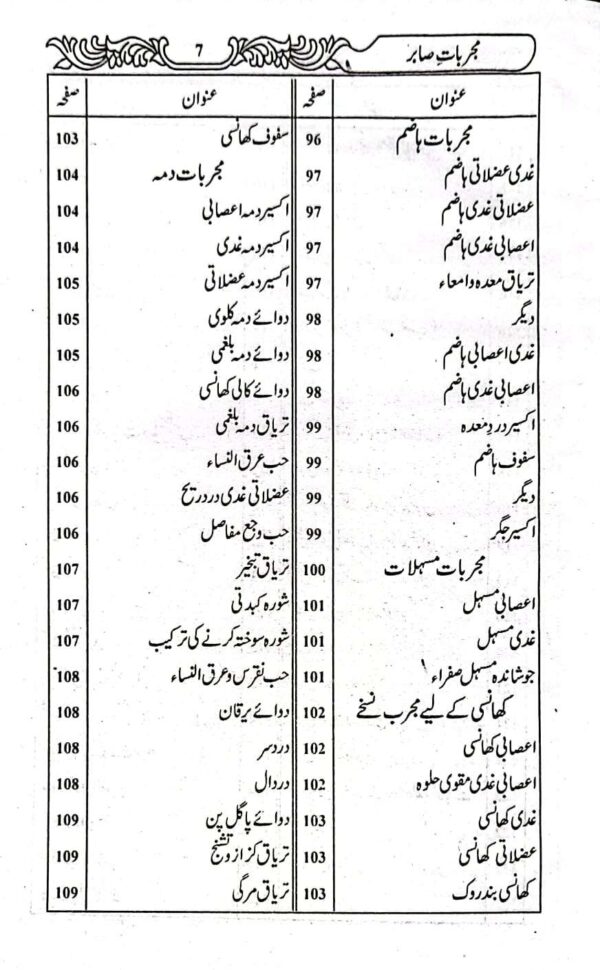 مجربات صابر
7
عنوان صفحہ
مجربات ہاضم 96
غدی عضلاتی ہاضم 97
عضلاتی غدی ہاضم 97
اعصابی غدی ہاضم 97
تریاق معدہ و امعاء 97
دیگر 98
غدی اعصابی ہاضم 98
اعصابی غدی ہاضم 98
اکسیر درد معدہ 99
سفوف ہاضم 99
دیگر 99
اکسیر جگر 99
مجربات مسہلات 100
اعصابی مسہل 101
غدی مسہل 101
جوشاندہ مسہل صفراء 101
کھانسی کے لیے مجرب نسخے 102
اعصابی کھانسی 102
اعصابی غدی مقوی حلوہ 102
غدی کھانسی 103
عضلاتی کھانسی 103
کھانسی بند روک 103
عنوان صفحہ
سفوف کھانسی 103
مجربات دمہ 104
اکسیر دمہ اعصابی 104
اکسیر دمہ غدی 104
اکسیر دمہ عضلاتی 105
دوائے دمہ کلوی 105
دوائے دمہ بلغمی 105
دوائے کالی کھانسی 106
تریاق دمہ بلغمی 106
حب عرق النساء 106
عضلاتی غدی درد ریح 106
حب وجع مفاصل 106
تریاق تبخیر 107
شورہ کبدتی 107
شورہ سوختہ کرنے کی ترکیب 107
حب نقرس و عرق النساء 108
دوائے یرقان 108
درد سر 108
درد دال 108
دوائے پاگل پن 109
تریاق کزاز و تشنج 109
تریاق مرگی 109